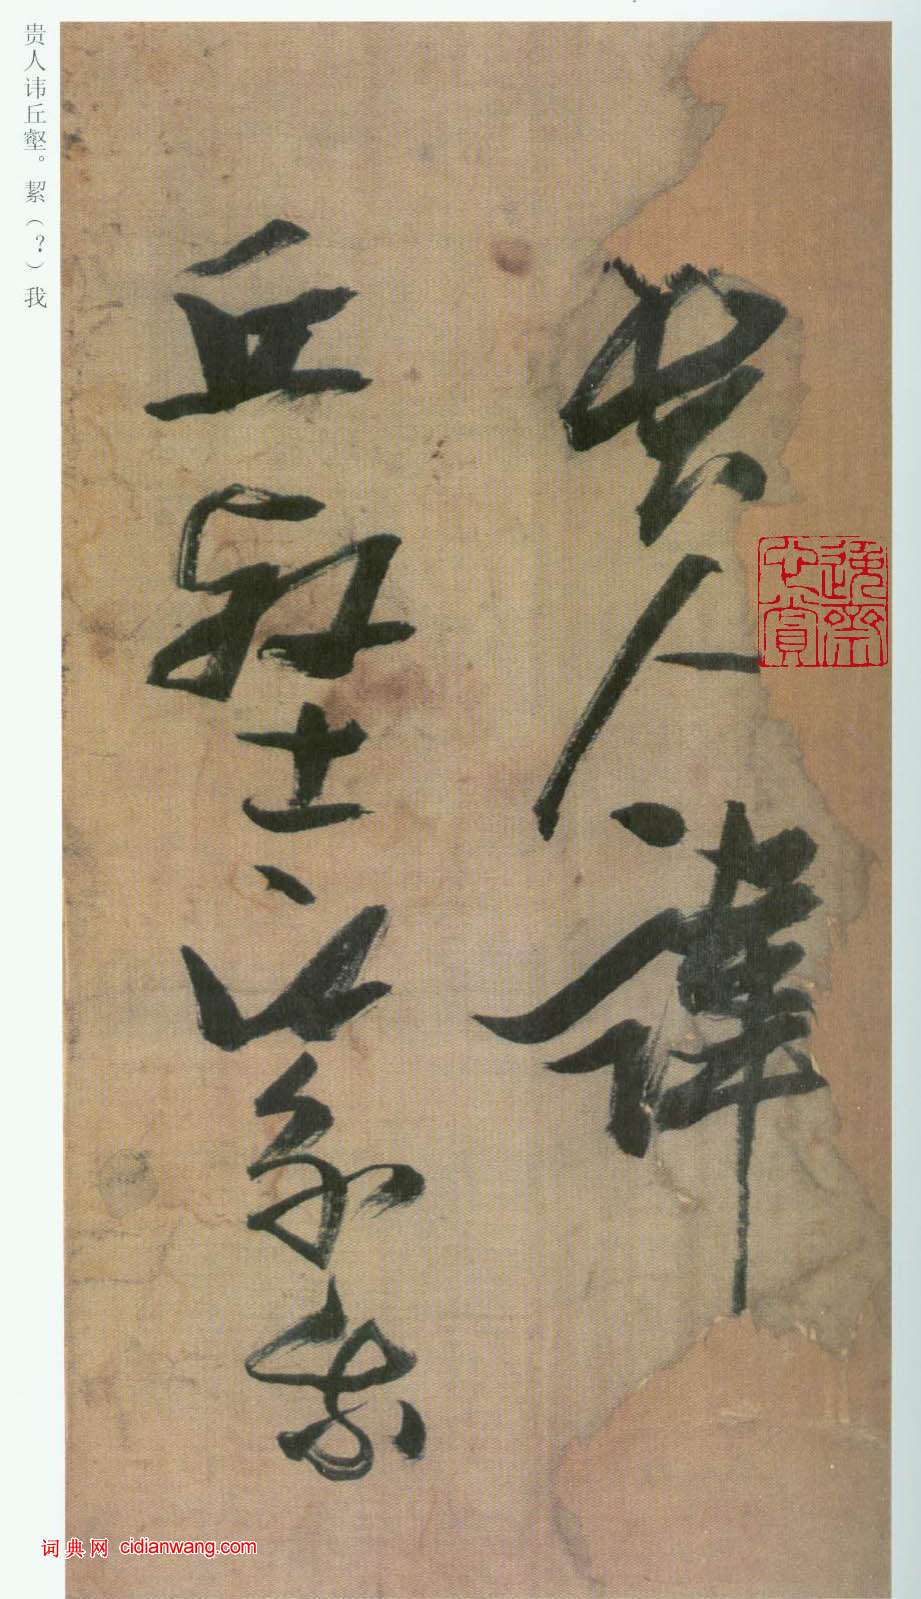 貴人諱
丘壑絜我
贵人讳丘壑。絜（？）我
词典网 cidianwang.com